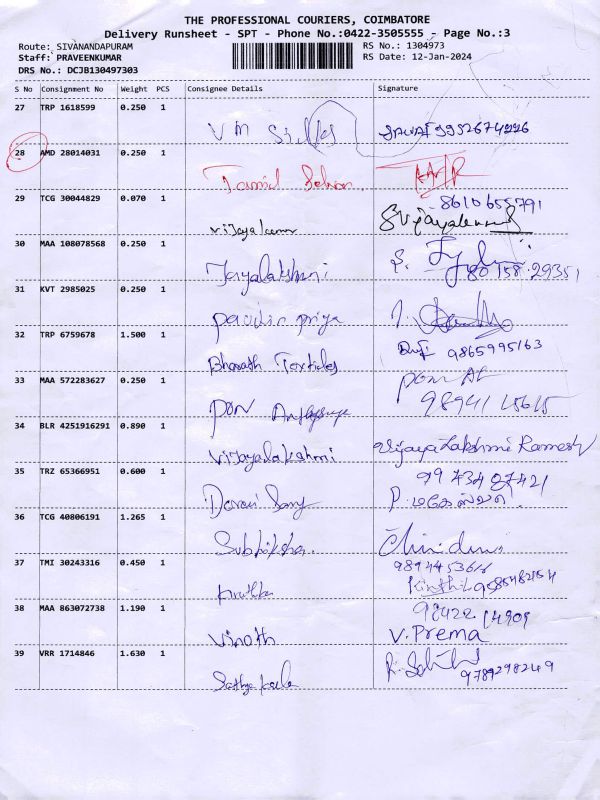 THE PROFESSIONAL COURIERS, COIMBATORE
Delivery Runsheet - SPT - Phone No.:0422-3505555 - Page No.:3
Route: SIVANANDAPURAM RS No.: 1304973
Staff: PRAVEENKUMAR RS Date: 12-Jan-2024
DRS No.: DCJB130497303
S No Consignment No Weight PCS Consignee Details Signature
27 TRP 1618599 0.250 1
VM Silks 9952674226
28 AMD 28014031 0.250 1
Tamil Selvan
29 TCG 30044829 0.070 1 8610655791
Vijayakumar
30 MAA 108078568 0.250 1
Jayalakshmi 80158 29351
31 KVT 2985025 0.250 1
Pavilin priya
32 TRP 6759678 1.500 1
Bharath Textiles 9865995163
33 MAA 572283627 0.250 1
PON
34 BLR 4251916291 0.890 1
Vijayalakshmi Vijaya Lakshmi Ramesh
35 TRZ 65366951 0.600 1 99734 87421
P. மகேஸ்வரி
36 TCG 40806191 1.265 1
Subhiksha
37 TMI 30243316 0.450 1
38 MAA 863072738 1.190 1 98422 14909
Vinoth V. Prema
39 VRR 1714846 1.630 1
Sathya kala 9789298249